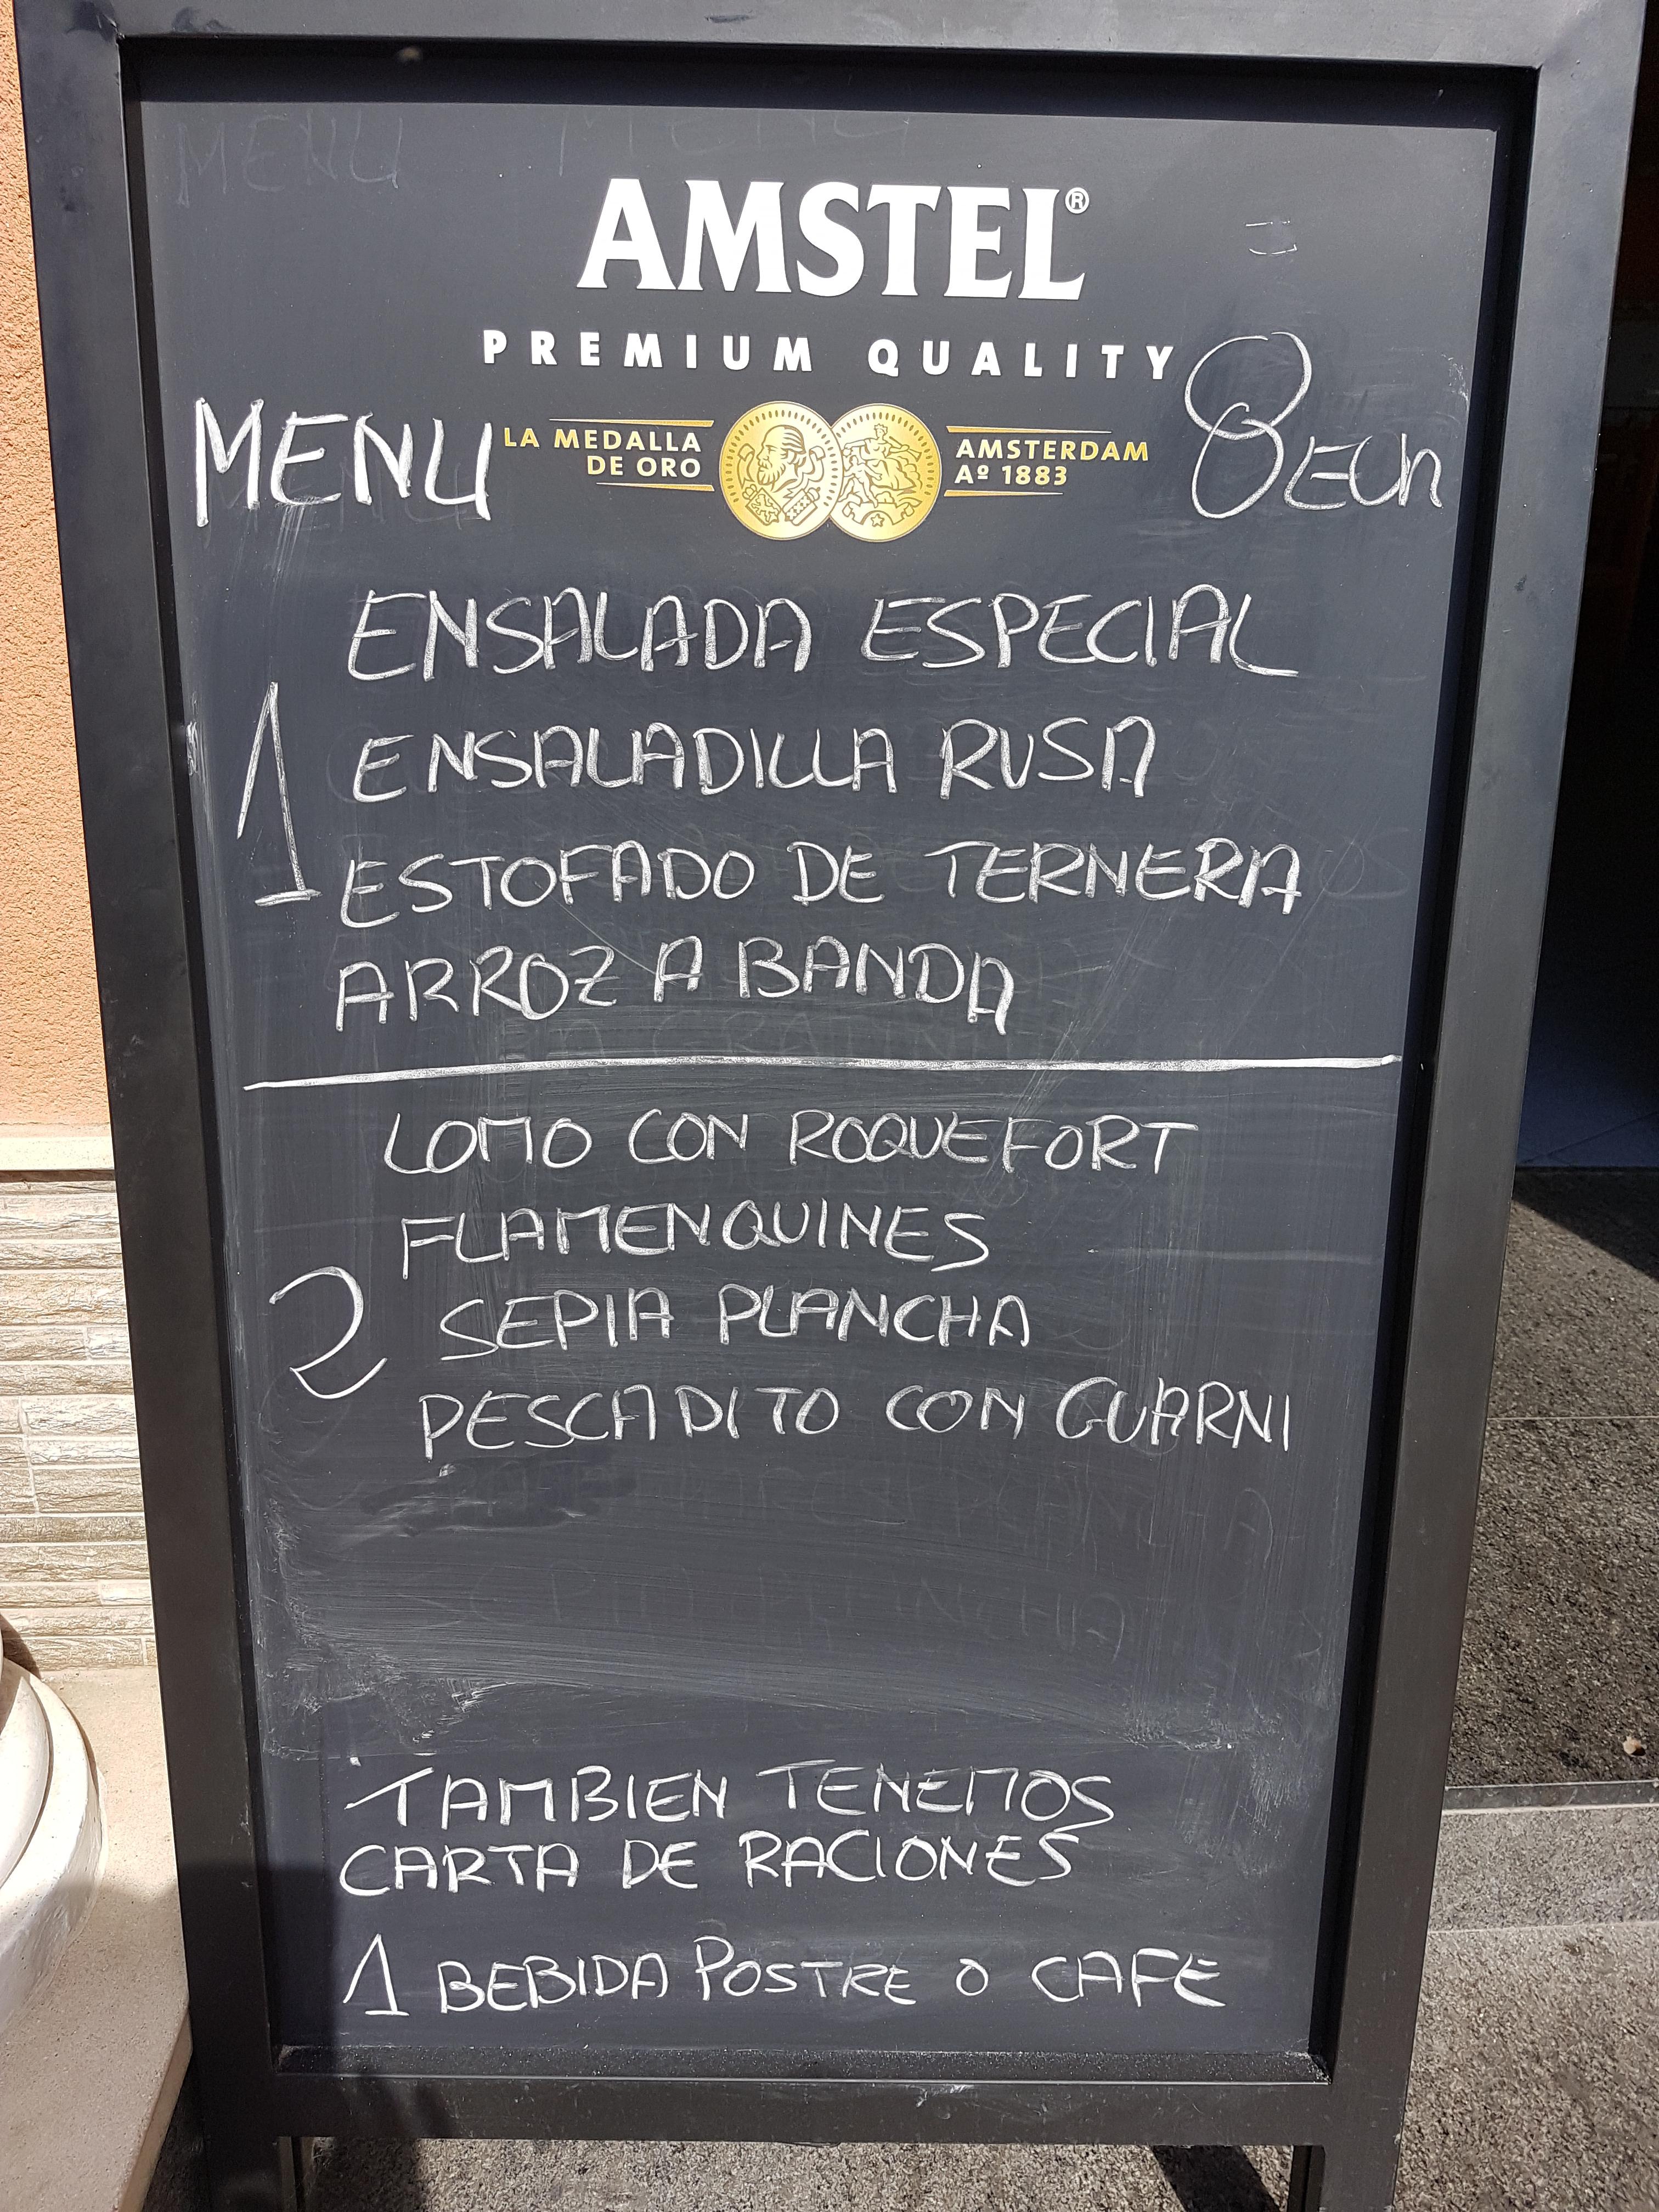 AMSTEL®
PREMIUM QUALITY
MENU LA MEDALLA DE ORO AMSTERDAM Aº 1883 8 EUR
ENSALADA ESPECIAL
1 ENSALADILLA RUSA
ESTOFADO DE TERNERA
ARROZ A BANDA
LOMO CON ROQUEFORT
FLAMENQUINES
2 SEPIA PLANCHA
PESCADITO CON GUARNI
TAMBIEN TENEMOS
CARTA DE RACIONES
1 BEBIDA POSTRE O CAFE